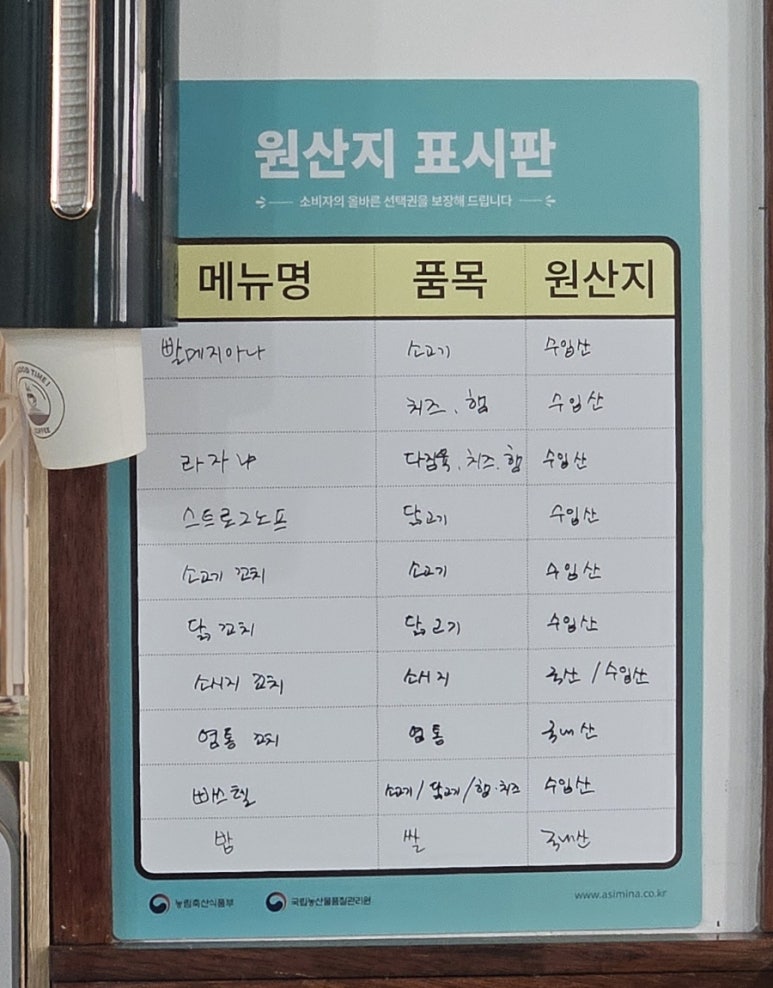 원산지 표시판
소비자의 올바른 선택권을 보장해 드립니다
메뉴명 품목 원산지
빨메지아나 소고기 수입산
치즈, 햄 수입산
라자냐 다짐육, 치즈, 햄 수입산
스트로그노프 닭고기 수입산
소고기 꼬치 소고기 수입산
닭 꼬치 닭고기 수입산
소시지 꼬치 소시지 국산 / 수입산
염통 꼬치 염통 국내산
빠스텔 소고기 / 닭고기 / 햄·치즈 수입산
밥 쌀 국내산
농림축산식품부 국립농산물품질관리원 www.asimina.co.kr